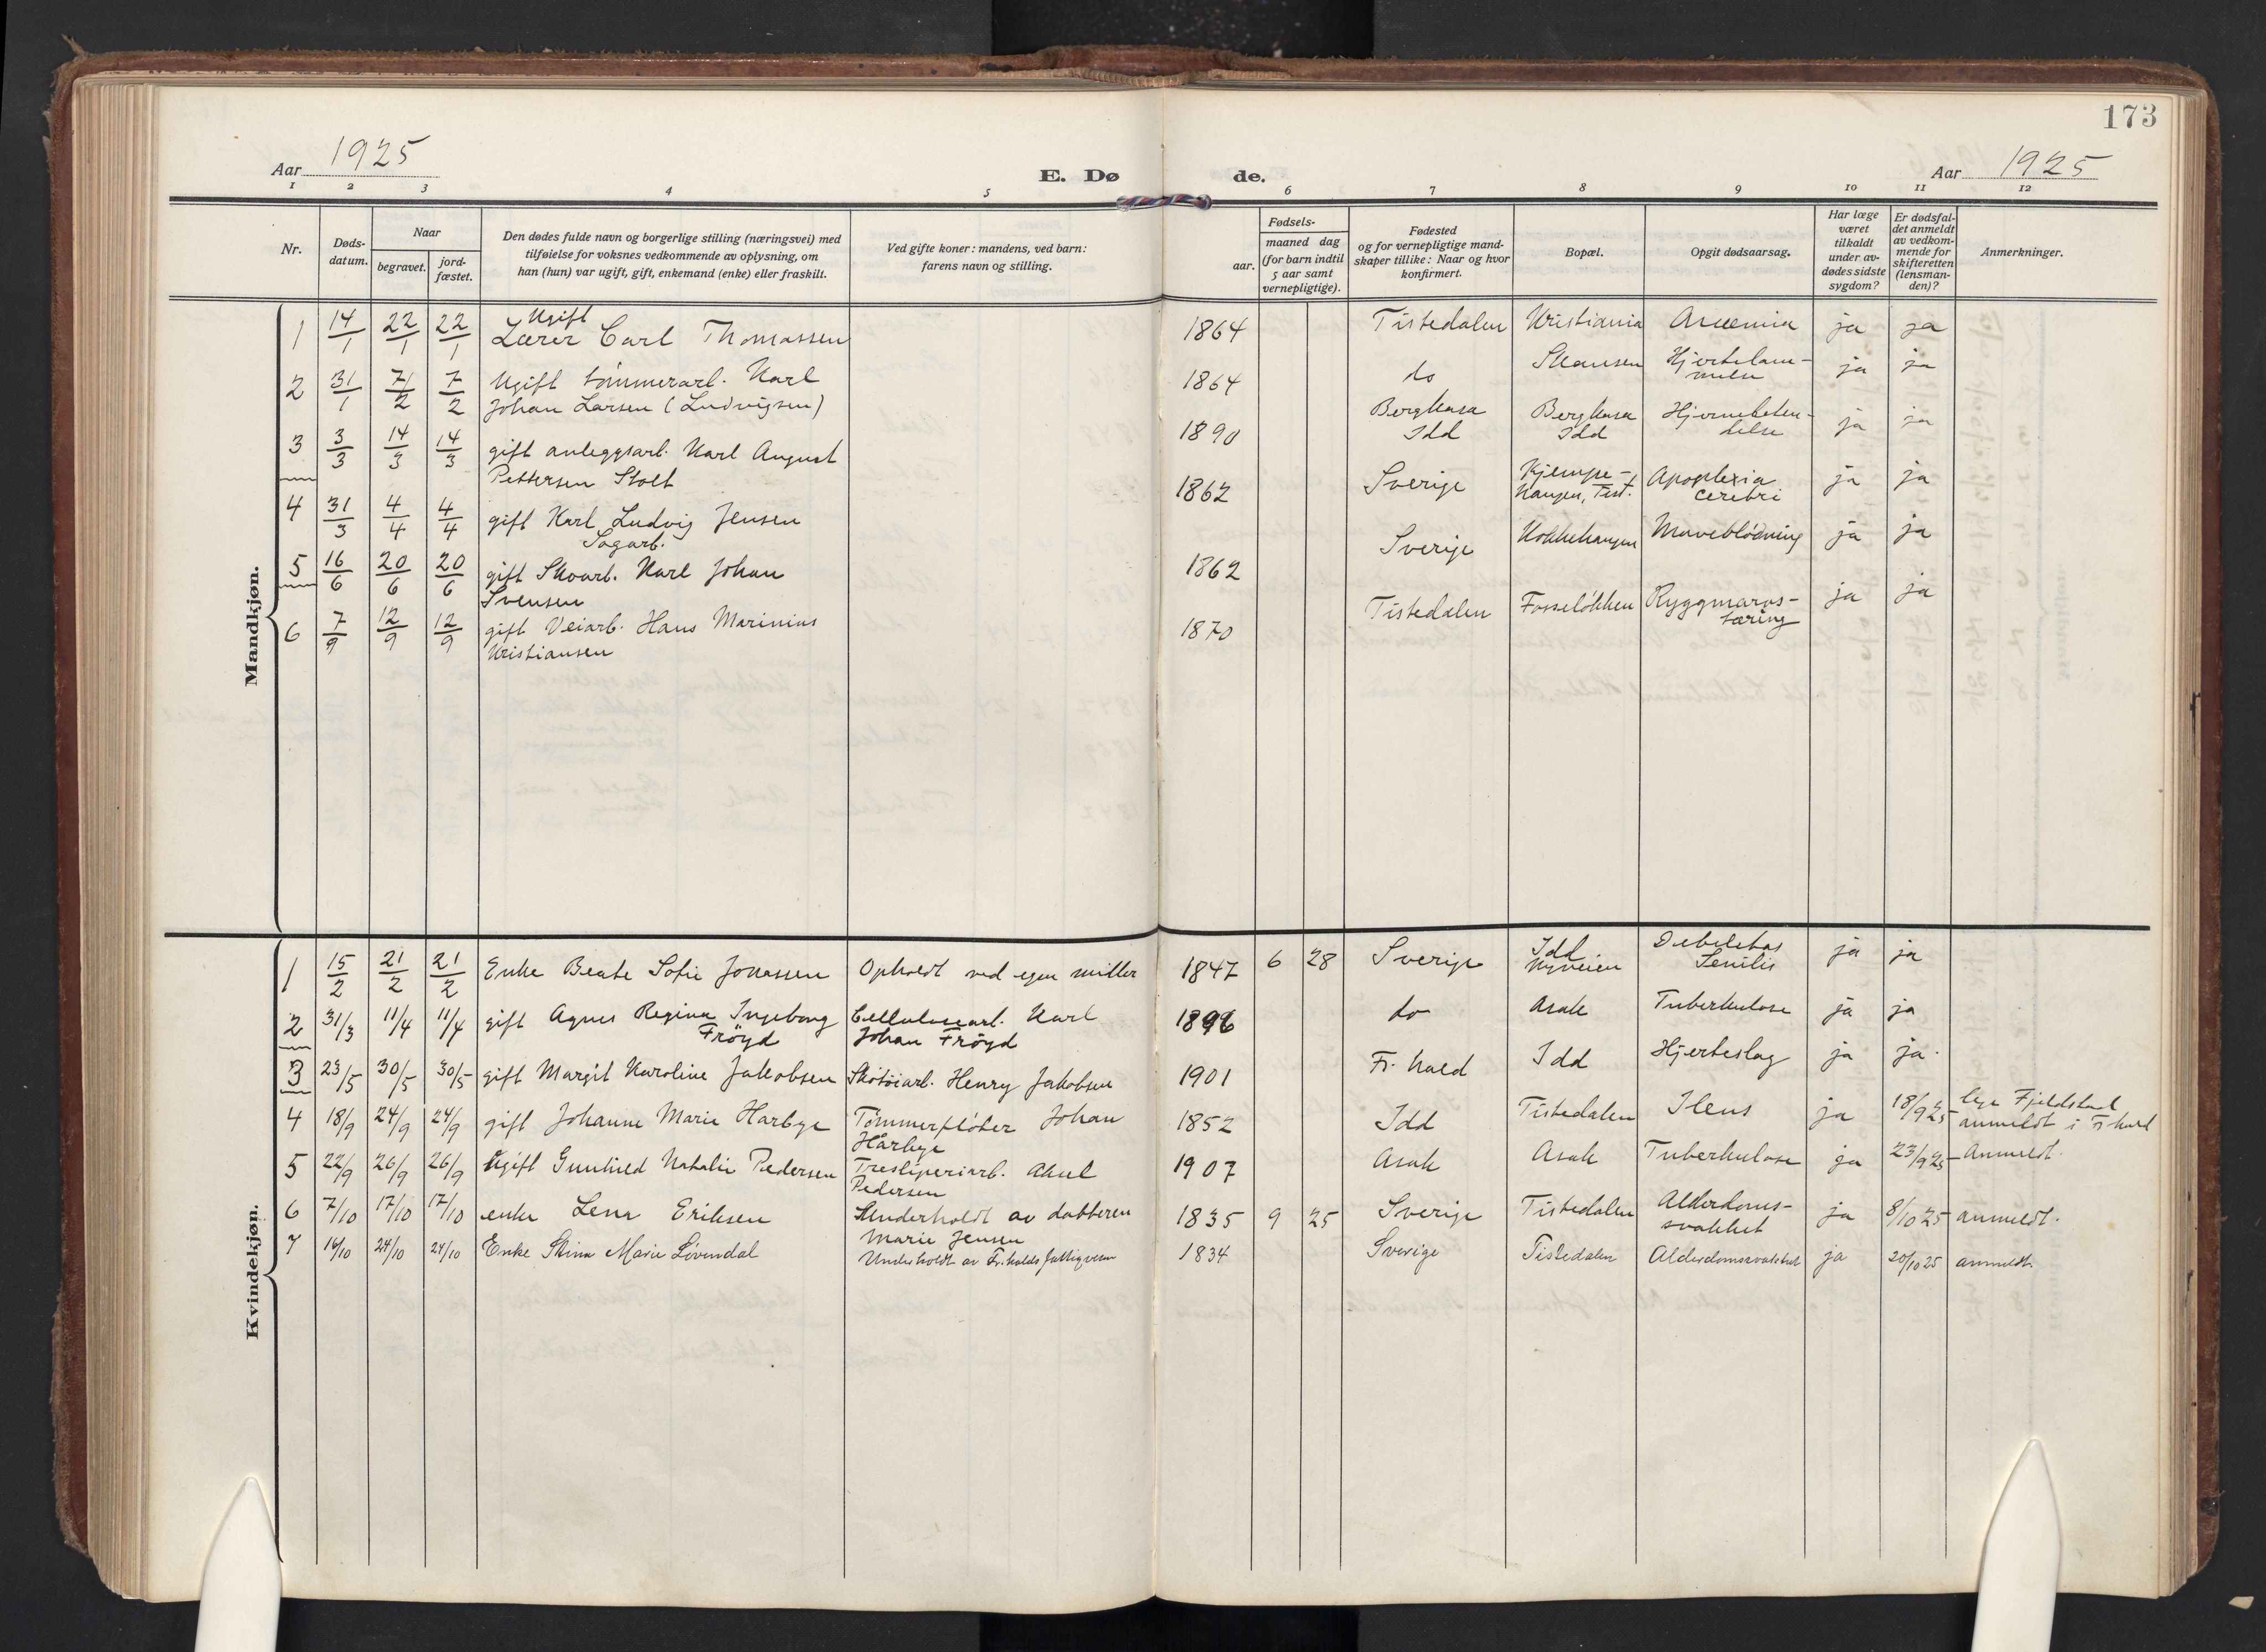 173
Aar 1925
E. Døde.
Aar 1925
1 2 3 4 5 6 7 8 9 10 11 12
Nr.
Døds-
datum.
Naar
begravet.
jord-
fæstet.
Den dødes fulde navn og borgerlige stilling (næringsvei) med
tilføielse for voksnes vedkommende av oplysning, om
han (hun) var ugift, gift, enkemand (enke) eller fraskilt.
Ved gifte koner: mandens, ved barn:
farens navn og stilling.
Fødsels-
aar.
maaned dag
(for barn indtil
5 aar samt
vernepligtige).
Fødested
og for vernepligtige mand-
skaper tillike: Naar og hvor
konfirmert.
Bopæl.
Opgit dødsaarsag.
Har læge
været
tilkaldt
under av-
dødes sidste
sygdom?
Er dødsfal-
det anmeldt
av vedkom-
mende for
skifteretten
(lensman-
den)?
Anmerkninger.
Mandkjøn.
1 14/1 22/1 22/1 Ugift
Lærer Carl Thomassen 1864 Tistedalen Kristiania ja ja
2 31/1 7/2 7/2 Ugift tømmerarb. Karl
Johan Larsen (Ludvigsen) 1864 do Skansen Hjertelam-
melse ja ja
3 3/3 14/3 14/3 gift anleggsarb. Karl August
Pettersen Stolt 1890 Bergkasa
Idd Bergkasa
Idd Hjernebeten-
delse ja ja
4 31/3 4/4 4/4 gift Karl Ludvig Jensen
Sagarb. 1862 Sverige Kjempe-
haugen, Tist. Apoplexia
cerebri ja ja
5 16/6 20/6 20/6 gift Skoarb. Karl Johan
Svensen 1862 Sverige Kokkehaugen Maveblödning ja ja
6 7/9 12/9 12/9 gift Veiarb. Hans Marinius
Kristiansen 1870 Tistedalen Fosseløkken Ryggmarvs-
tæring ja ja
Kvindekjøn.
1 15/2 21/2 21/2 Enke Beate Sofie Jonassen Opholdt ved egne midler 1847 6 28 Sverige Idd
Nyveien Debilitas
Senilis ja ja
2 31/3 11/4 11/4 gift Agnes Regina Ingeborg
Fröyd Cellulosearb. Karl
Johan Fröyd 1896 do Asak Tuberkulose ja ja
3 23/5 30/5 30/5 gift Margit Karoline Jakobsen Skotöiarb. Henry Jakobsen 1901 Fr. hald Idd Hjerteslag ja ja.
4 18/9 24/9 24/9 gift Johanne Marie Harbye Tømmerfløter Johan
Harbye 1852 Idd Tistedalen Ileus ja 18/9 25 lege Fjeldstad
anmeldt i F hald
5 22/9 26/9 26/9 Ugift Gunhild Natalie Pedersen Tresliperiarb. Aksel
Pedersen 1907 Asak Asak Tuberkulose ja 23/9 25 Anmeldt.
6 7/10 17/10 17/10 enke Lena Eriksen Underholdt av datteren
Marie Jensen 1835 9 25 Sverige Tistedalen Alderdoms-
svakhet ja 8/10 25 anmeldt.
7 16/10 24/10 24/10 Enke Stina Marie Lövendal Underholdt av Fr.halds fattigvesen 1834 Sverige Tistedalen Alderdomssvakhet ja 20/10 25 anmeldt.